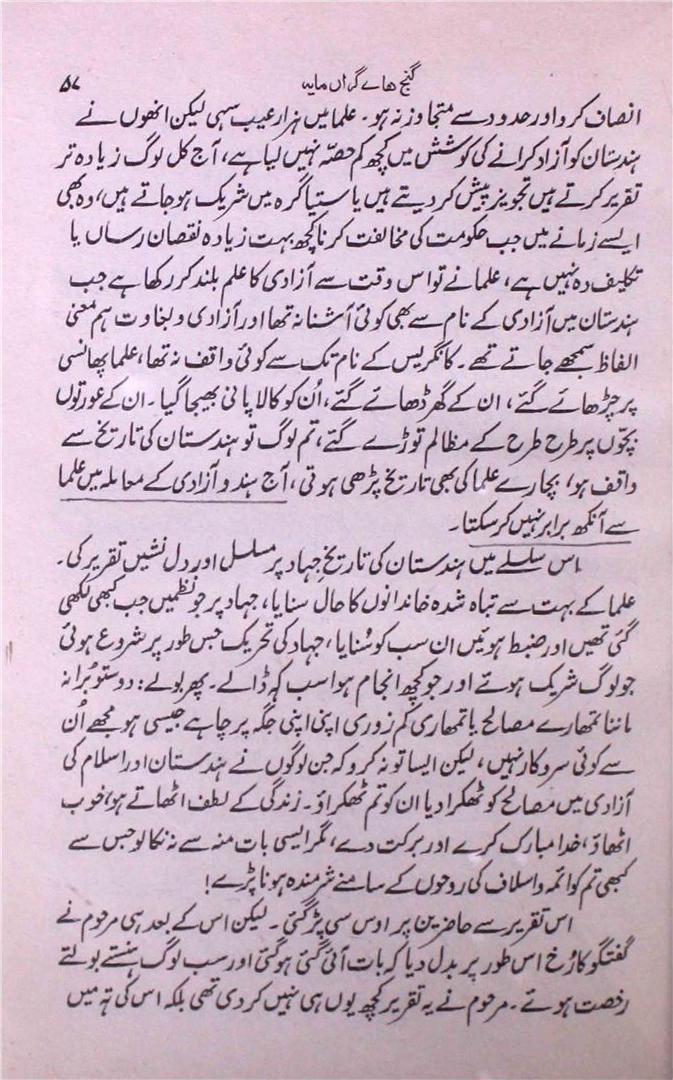 گنج ھائے گراں مایہ ۵۷
انصاف کرو اور حدود سے متجاوز نہ ہو۔ علما میں ہزار عیب سہی لیکن انھوں نے
ہندستان کو آزاد کرانے کی کوشش میں کچھ کم حصّہ نہیں لیا ہے، آج کل لوگ زیادہ تر
تقریر کرتے ہیں تجویز پیش کر دیتے ہیں یا ستیاگرہ میں شریک ہو جاتے ہیں، وہ بھی
ایسے زمانے میں جب حکومت کی مخالفت کرنا کچھ بہت زیادہ نقصان رساں یا
تکلیف دہ نہیں ہے، علما نے تو اس وقت سے آزادی کا علم بلند کر رکھا ہے جب
ہندستان میں آزادی کے نام سے بھی کوئی آشنا نہ تھا اور آزادی و بغاوت ہم معنی
الفاظ سمجھے جاتے تھے۔ کانگریس کے نام تک سے کوئی واقف نہ تھا، علما پھانسی
پر چڑھائے گئے، ان کے گھر ڈھائے گئے، اُن کو کالا پانی بھیجا گیا۔ ان کے عورتوں
بچّوں پر طرح طرح کے مظالم توڑے گئے، تم لوگ تو ہندستان کی تاریخ سے
واقف ہو، بچارے علما کی بھی تاریخ پڑھی ہوتی، آج ہندو آزادی کے معاملہ میں علما
سے آنکھ برابر نہیں کر سکتا۔
اس سلسلے میں ہندستان کی تاریخِ جہاد پر مسلسل اور دل نشیں تقریر کی۔
علما کے بہت سے تباہ شدہ خاندانوں کا حال سنایا، جہاد پر جو نظمیں جب کبھی لکھی
گئی تھیں اور ضبط ہوئیں ان سب کو سُنایا، جہاد کی تحریک جس طور پر شروع ہوئی
جو لوگ شریک ہوئے اور جو کچھ انجام ہوا سب کہہ ڈالے۔ پھر بولے: دوستو بُرا نہ
ماننا تمھارے مصالح یا تمھاری کم زوری اپنی اپنی جگہ پر چاہے جیسی ہو مجھے اُن
سے کوئی سروکار نہیں، لیکن ایسا تو نہ کرو کہ جن لوگوں نے ہندستان اور اسلام کی
آزادی میں مصالح کو ٹھکرا دیا ان کو تم ٹھکراؤ۔ زندگی کے لطف اٹھاتے ہو، خوب
اٹھاؤ، خدا مبارک کرے اور برکت دے، مگر ایسی بات منہ سے نہ نکالو جس سے
کبھی تم کو ائمہ و اسلاف کی روحوں کے سامنے شرمندہ ہونا پڑے!
اس تقریر سے حاضرین پر اوس سی پڑ گئی۔ لیکن اس کے بعد ہی مرحوم نے
گفتگو کا رُخ اس طور پر بدل دیا کہ بات آئی گئی ہو گئی اور سب لوگ ہنستے بولتے
رخصت ہوئے۔ مرحوم نے یہ تقریر کچھ یوں ہی نہیں کر دی تھی بلکہ اس کی تہ میں